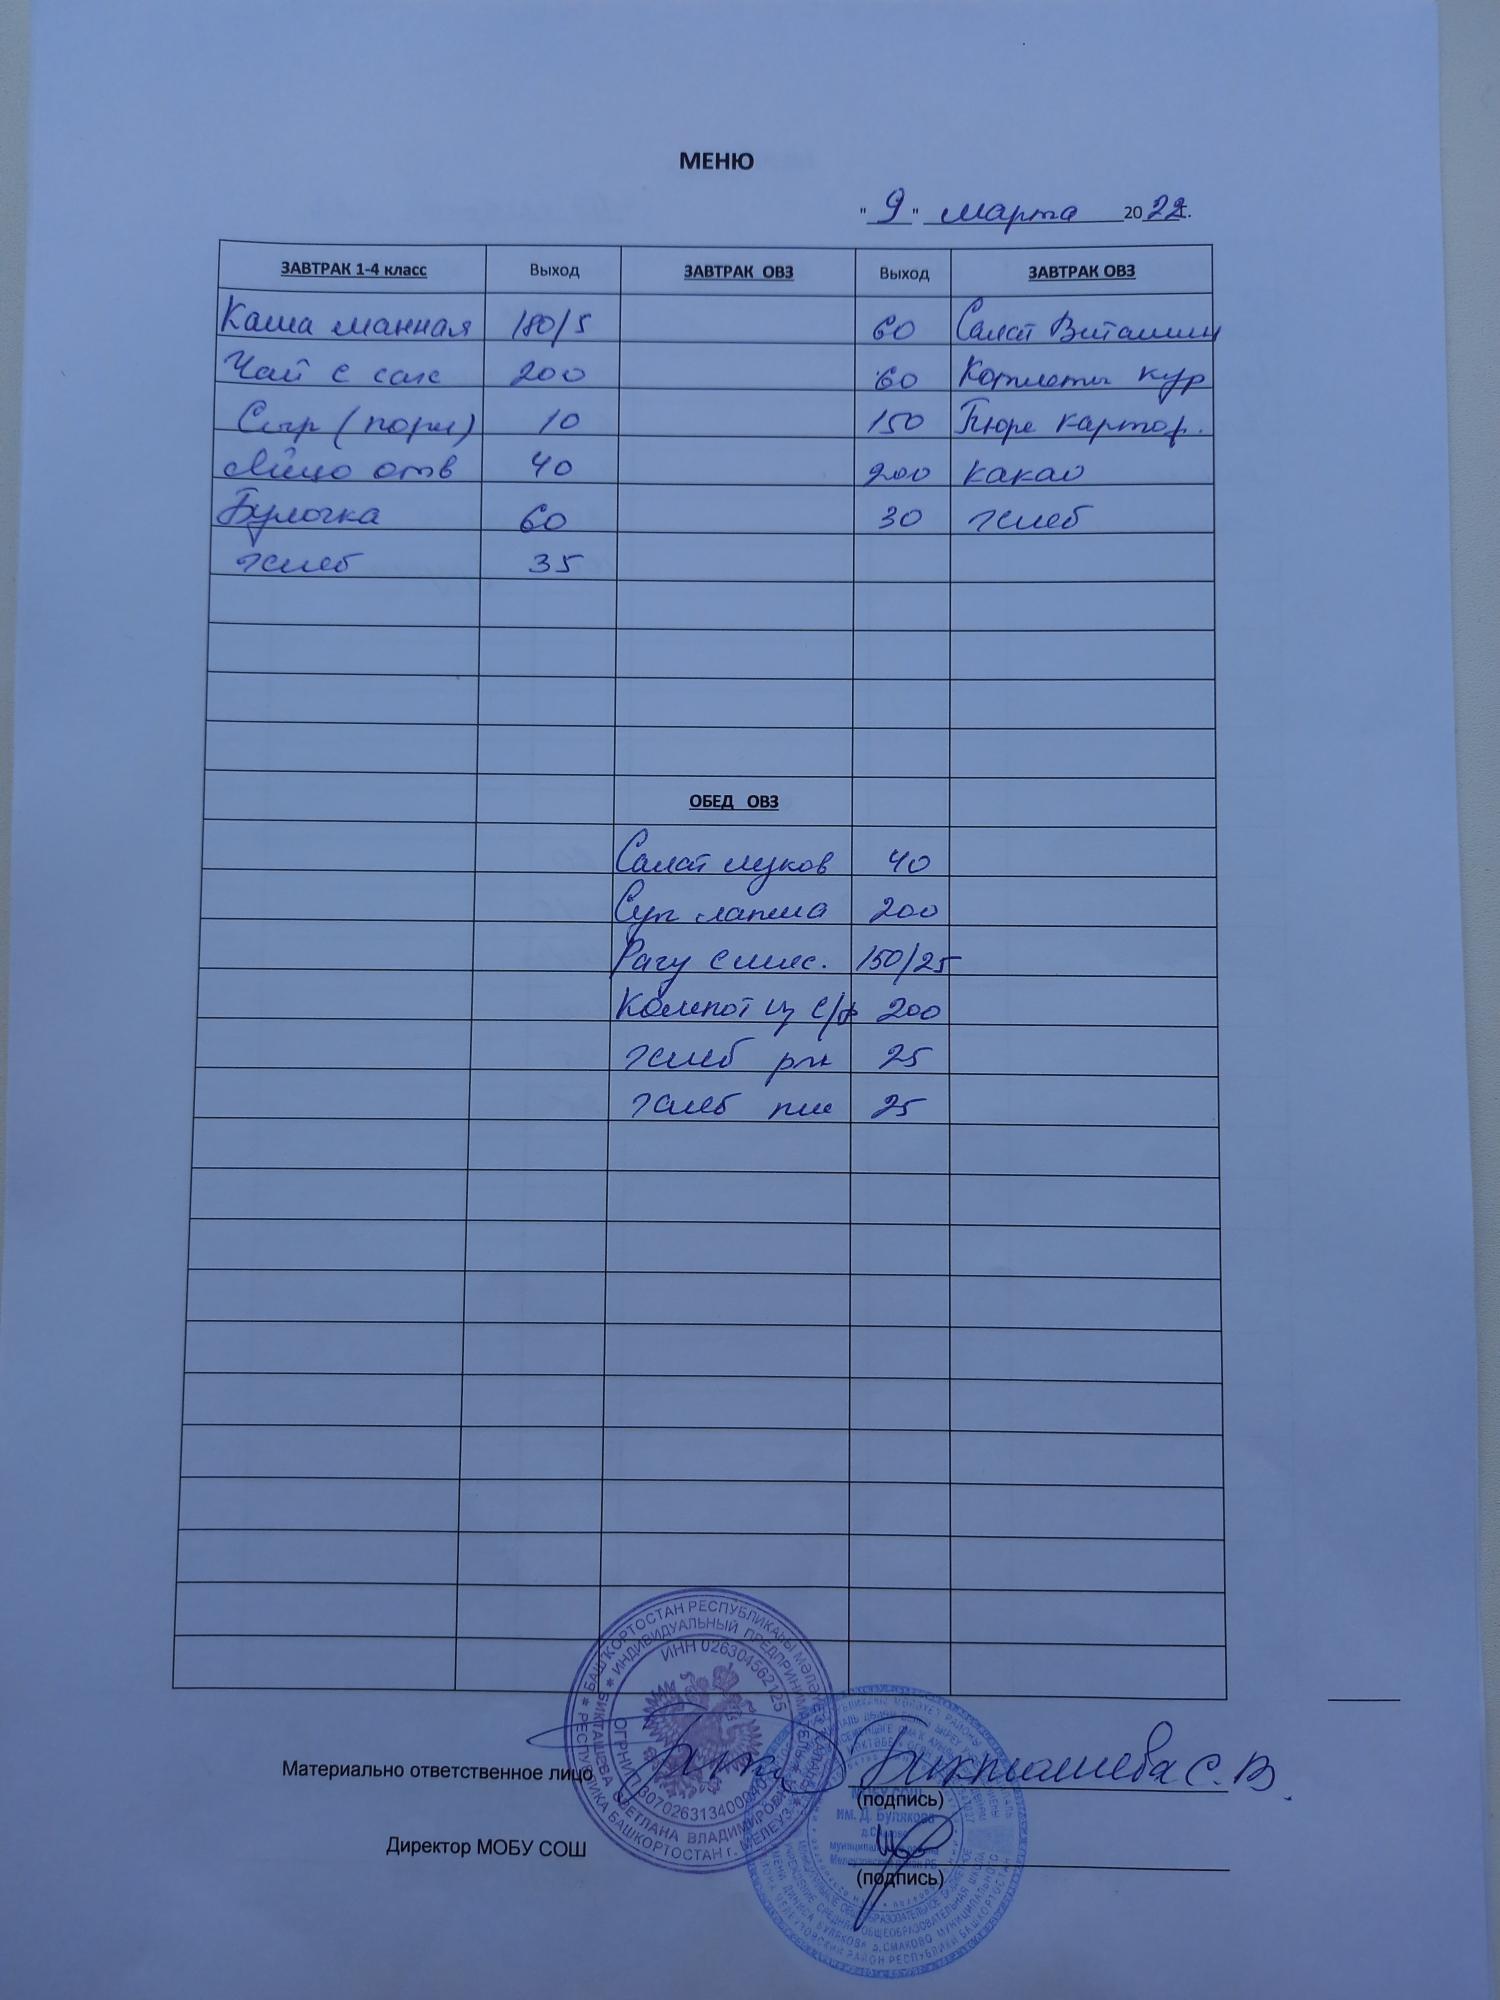 МЕНЮ
" 9 " марта 2022г.
ЗАВТРАК 1-4 класс Выход ЗАВТРАК ОВЗ Выход ЗАВТРАК ОВЗ
Каша манная 180/5 60 Салат Витамин
Чай с сах 200 60 Котлеты кур
Сыр (порц) 10 150 Пюре картоф.
Яйцо отв 40 200 какао
Булочка 60 30 хлеб
хлеб 35
ОБЕД ОВЗ
Салат луков 40
Суп лапша 200
Рагу с мяс. 150/25
Компот из с/ф 200
хлеб рж 25
хлеб пше 25
БАШҠОРТОСТАН РЕСПУБЛИКАҺЫ
ИНДИВИДУАЛЬНЫЙ ПРЕДПРИНИМАТЕЛЬ
ИНН 026304562125
БИКТАШЕВА СВЕТЛАНА ВЛАДИМИРОВНА
РЕСПУБЛИКА БАШКОРТОСТАН г. МЕЛЕУЗ
Материально ответственное лицо Бикташева С. В.
(подпись)
МОБУ СОШ
им. Д. Булякова
Директор МОБУ СОШ
(подпись)